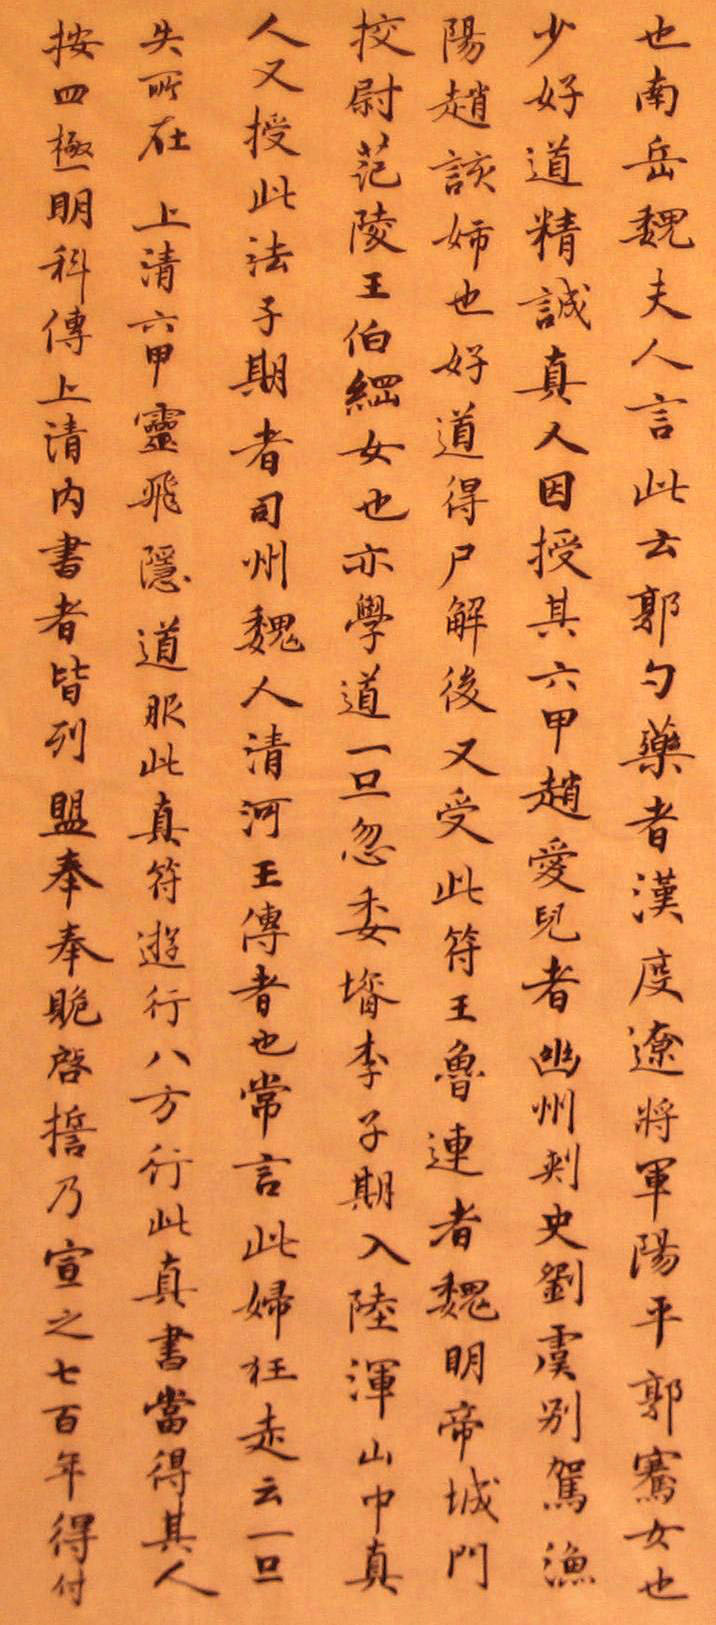 也南岳魏夫人言此云郭勺藥者漢度遼將軍陽平郭騫女也
少好道精誠真人因授其六甲趙愛兒者幽州刾史劉虞别駕漁
陽趙該姊也好道得尸解後又受此符王魯連者魏明帝城門
挍尉范陵王伯綱女也亦學道一旦忽委壻李子期入陸渾山中真
人又授此法子期者司州魏人清河王傳者也常言此婦狂走云一旦
失所在 上清六甲靈飛隱道服此真符遊行八方行此真書當得其人
按四極明科傳上清内書者皆列盟奉奉跪啓誓乃宣之七百年得付